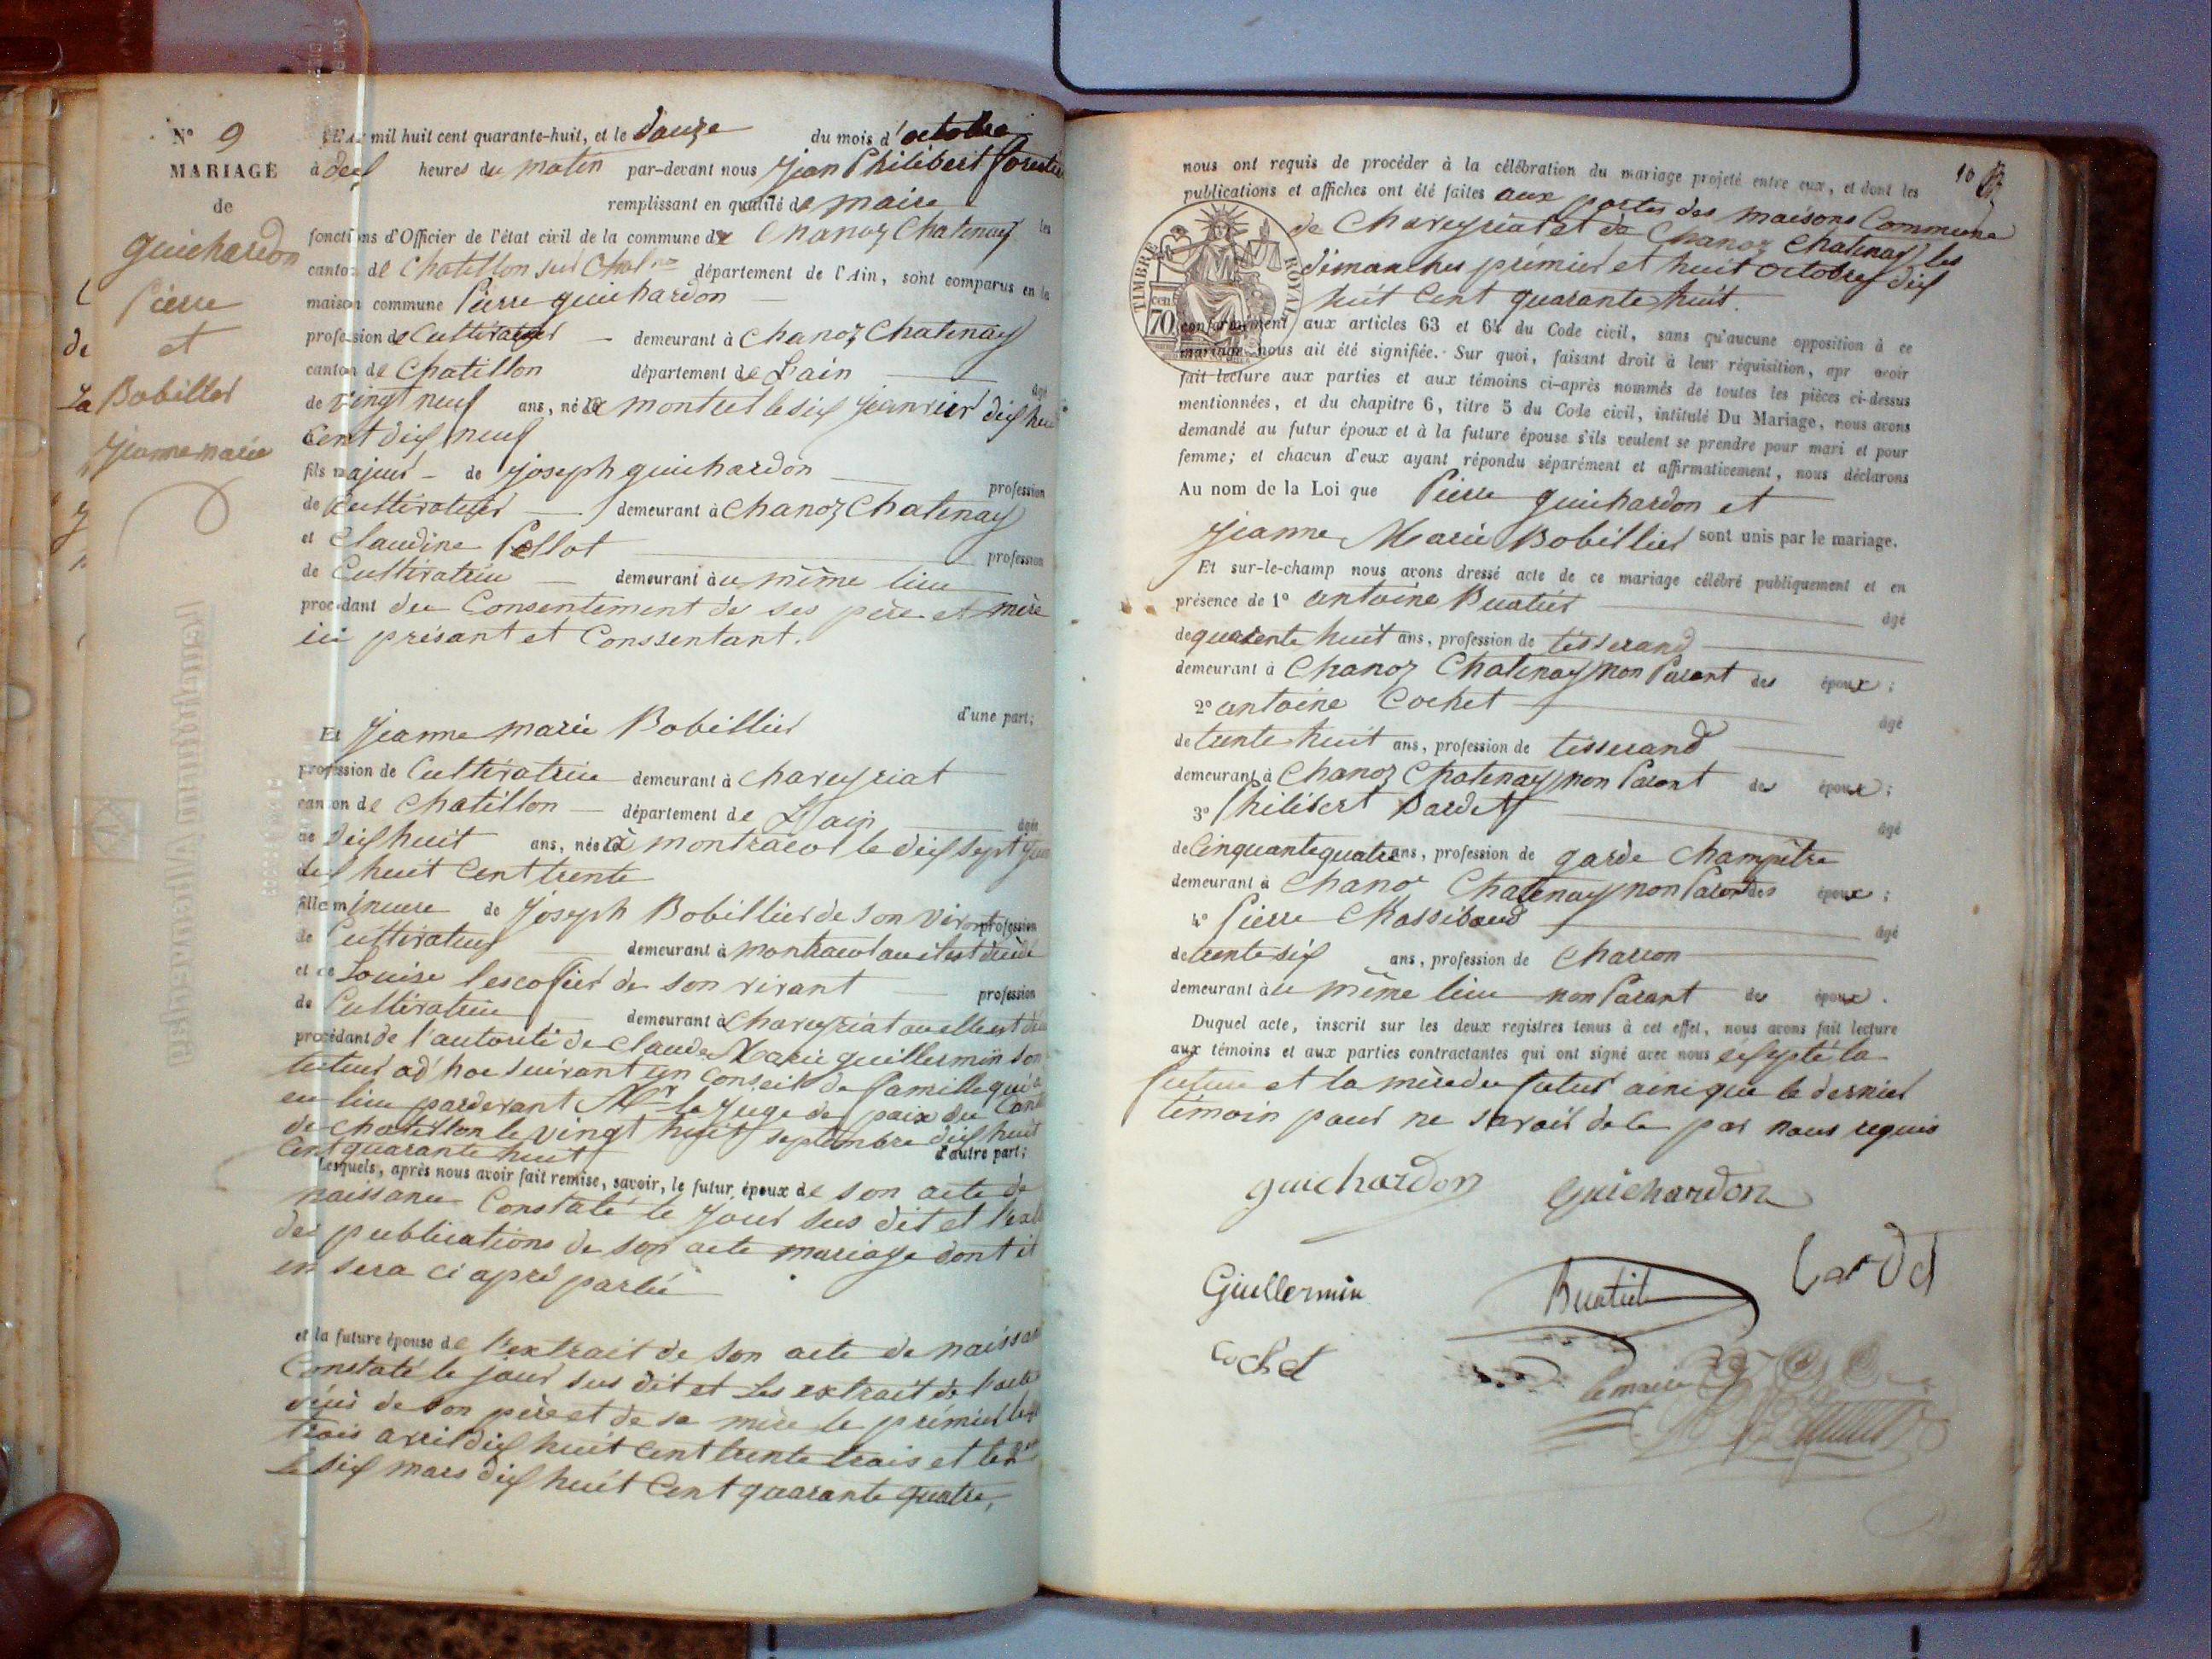 N° 9
MARIAGE
de
guichardon
Pierre
et
Bobillier
Jeanne marie
mil huit cent quarante-huit, et le douze du mois d'octobre
à dix heures du matin par-devant nous Jean Philibert
remplissant en qualité de maire les
fonctions d'Officier de l'état civil de la commune de Chanoz Chatenay
canton de Chatillon sur Chal.ne département de l'Ain, sont comparus en la
maison commune Pierre guichardon
profession de Cultivateur demeurant à Chanoz Chatenay
canton de Chatillon département de L'ain âgé
de vingt neuf ans, né à le six Janvier dix huit
cent dix neuf
fils majeur de joseph guichardon profession
de Cultivateur demeurant à Chanoz Chatenay
et Claudine Pellot profession
de Cultivatrice demeurant au même lieu
procédant du Consentement de ses père et mère
ici présant et Conssentant.
d'une part;
Et Jeanne marie Bobillier
profession de Cultivatrice demeurant à chaveyriat
canton de Chatillon département de L'ain âgée
de dix huit ans, née à montracol le dix sept
dix huit Cent trente
fille mineure de Joseph Bobillier de son vivant profession
de Cultivateur demeurant à Montracol ou il est décédé
et de Louise lescofier de son vivant profession
de Cultivatrice demeurant à Chaveyriat ou elle est
procédant de l'autorité de Claude Marie guillermin son
tuteur ad'hoc suivant un conseil de famille qui a
eu lieu pardevant Mr le Juge de paix du Canton
de Chatillon le vingt huit septembre dix huit
Cent quarante huit d'autre part;
Lesquels, après nous avoir fait remise, savoir, le futur époux de son acte de
naissance Constaté le jour sus dit et
des publications de son acte mariage dont il
en sera ci après parlé
et la future épouse de l'extrait de son acte de
Constaté le jour sus dit et les extrait de l'acte
de son père et de sa mère le prémier le
trois avril dix huit Cent trente trois et le
le six mars dix huit Cent quarante quatre,
10
nous ont requis de procéder à la célébration du mariage projeté entre eux, et dont les
publications et affiches ont été faites aux portes des maisons Commune
de Chaveyriat et de Chanoz Chatenay les
dimanches prémier et huit octobre dix
huit Cent quarante huit.
TIMBRE ROYAL
cen
70
conformément aux articles 63 et 64 du Code civil, sans qu'aucune opposition à ce
mariage nous ait été signifiée. Sur quoi, faisant droit à leur réquisition, apr avoir
fait lecture aux parties et aux témoins ci-après nommés de toutes les pièces ci-dessus
mentionnées, et du chapitre 6, titre 5 du Code civil, intitulé Du Mariage, nous avons
demandé au futur époux et à la future épouse s'ils veulent se prendre pour mari et pour
femme; et chacun d'eux ayant répondu séparément et affirmativement, nous déclarons
Au nom de la Loi que Pierre guichardon et
Jeanne Marie Bobillier sont unis par le mariage.
Et sur-le-champ nous avons dressé acte de ce mariage célébré publiquement et en
présence de 1° antoine Buatier âgé
de quarente huit ans, profession de tisserand
demeurant à Chanoz Chatenay non Parant des époux;
2° antoine Cochet âgé
de trente huit ans, profession de tisserand
demeurant à Chanoz Chatenay non Parant des époux;
3° Philibert Bardet âgé
de Cinquante quatre ans, profession de garde Champêtre
demeurant à Chanoz Chatenay non Parant des époux;
4° Pierre âgé
de trente six ans, profession de Charron
demeurant au même lieu non Parant des époux.
Duquel acte, inscrit sur les deux registres tenus à cet effet, nous avons fait lecture
aux témoins et aux parties contractantes qui ont signé avec nous la
future et la mère du futur ainsi que le dernier
témoin pour ne savoir de ce par nous requis
guichardon Guichardon
Guillermin Buatier Bardet
Cochet le maire